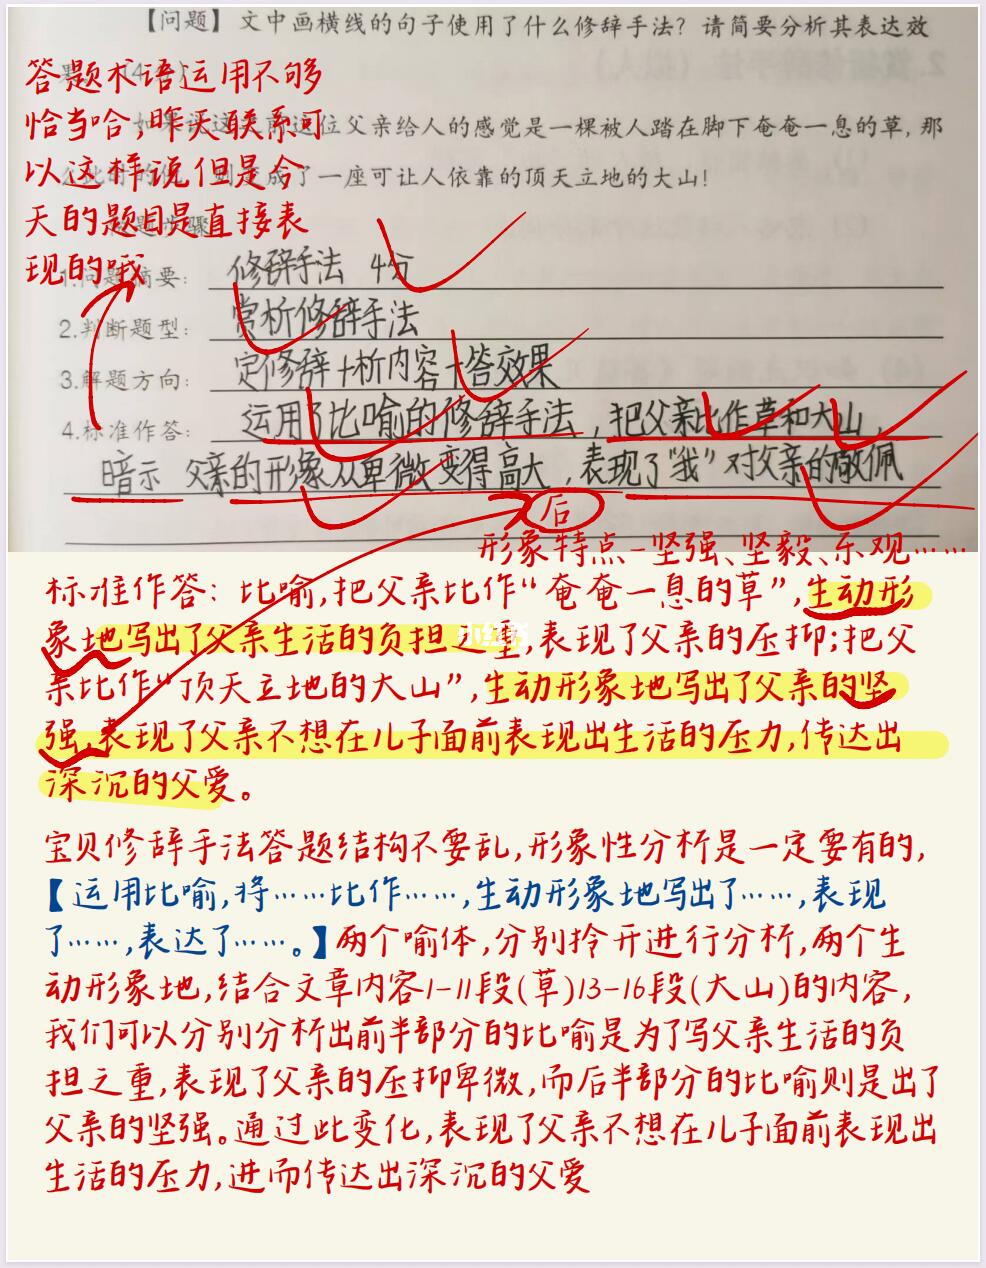 【问题】文中画横线的句子使用了什么修辞手法？请简要分析其表达效
答题术语运用不够
恰当哈，昨天联系可
以这样说但是今
天的题目是直接表
现的哦
这位父亲给人的感觉是一棵被人踏在脚下奄奄一息的草，那
了一座可让人依靠的顶天立地的大山！
1.问题摘要：修辞手法 4分
2.判断题型：赏析修辞手法
3.解题方向：定修辞+析内容+答效果
4.标准作答：运用了比喻的修辞手法，把父亲比作草和大山，
暗示 父亲的形象从卑微变得高大，表现了“我”对父亲的敬佩
后
形象特点-坚强、坚毅、乐观……
标准作答：比喻，把父亲比作“奄奄一息的草”，生动形
象地写出了父亲生活的负担之重，表现了父亲的压抑；把父
亲比作“顶天立地的大山”，生动形象地写出了父亲的坚
强，表现了父亲不想在儿子面前表现出生活的压力，传达出
深沉的父爱。
小红书
宝贝修辞手法答题结构不要乱，形象性分析是一定要有的，
【运用比喻，将……比作……，生动形象地写出了……，表现
了……，表达了……。】两个喻体，分别拎开进行分析，两个生
动形象地，结合文章内容1-11段(草)13-16段(大山)的内容，
我们可以分别分析出前半部分的比喻是为了写父亲生活的负
担之重，表现了父亲的压抑卑微，而后半部分的比喻则是出了
父亲的坚强。通过此变化，表现了父亲不想在儿子面前表现出
生活的压力，进而传达出深沉的父爱